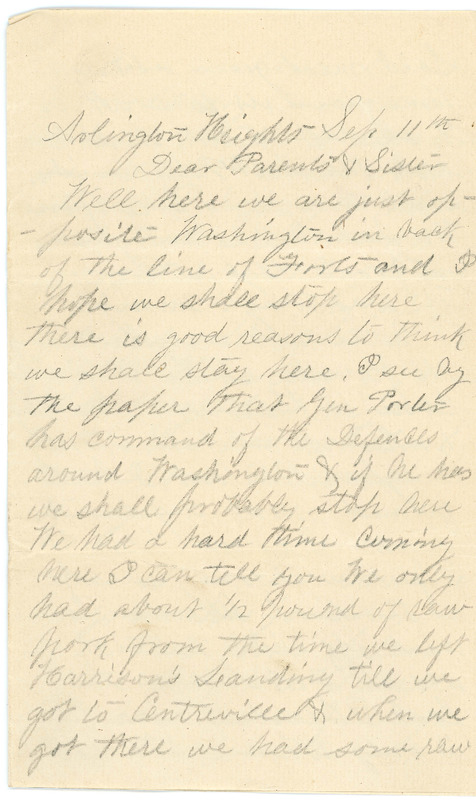 Arlington Heights Sep 11th
Dear Parents & Sister
Well here we are just op-
-posite Washington in back
of the line of Forts and I
hope we shall stop here
there is good reasons to think
we shall stay here. I see by
the paper that Gen Porter
has command of the Defences
around Washington & if he has
we shall probably stop here
We had a hard time coming
here I can tell you We only
had about 1/2 pound of raw
pork from the time we left
Harrison's Leanding till we
got to Centreville & when we
got there we had some raw